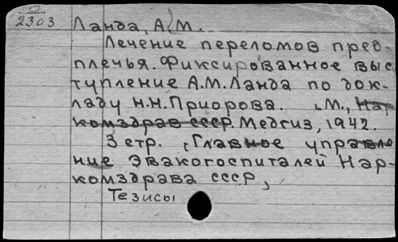 2303 Ланда, А.М.
Лечение переломов пред-
плечья. Фиксированное выс
тупление А.М. Ланда по док-
ладу Н.Н. Приорова. М., Нар
комздрав СССР Медгиз, 1942.
3 стр. , Главное управле
ние Эвакогоспиталей Нар-
комздрава СССР,
Тезисы